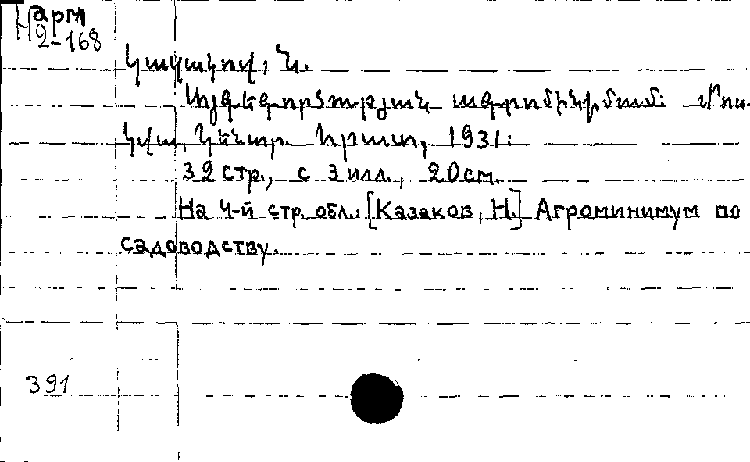 Н арм
2-168
Կազակով, Ն.
Այգեգործության ագրոմինիմում: Մոս-
կվա, Կենտր. հրատ., 1931:
32 стр., с 3 илл., 20 см.
На 4-й стр. обл.: [Казаков, Н.] Агроминимум по
садоводству.
391